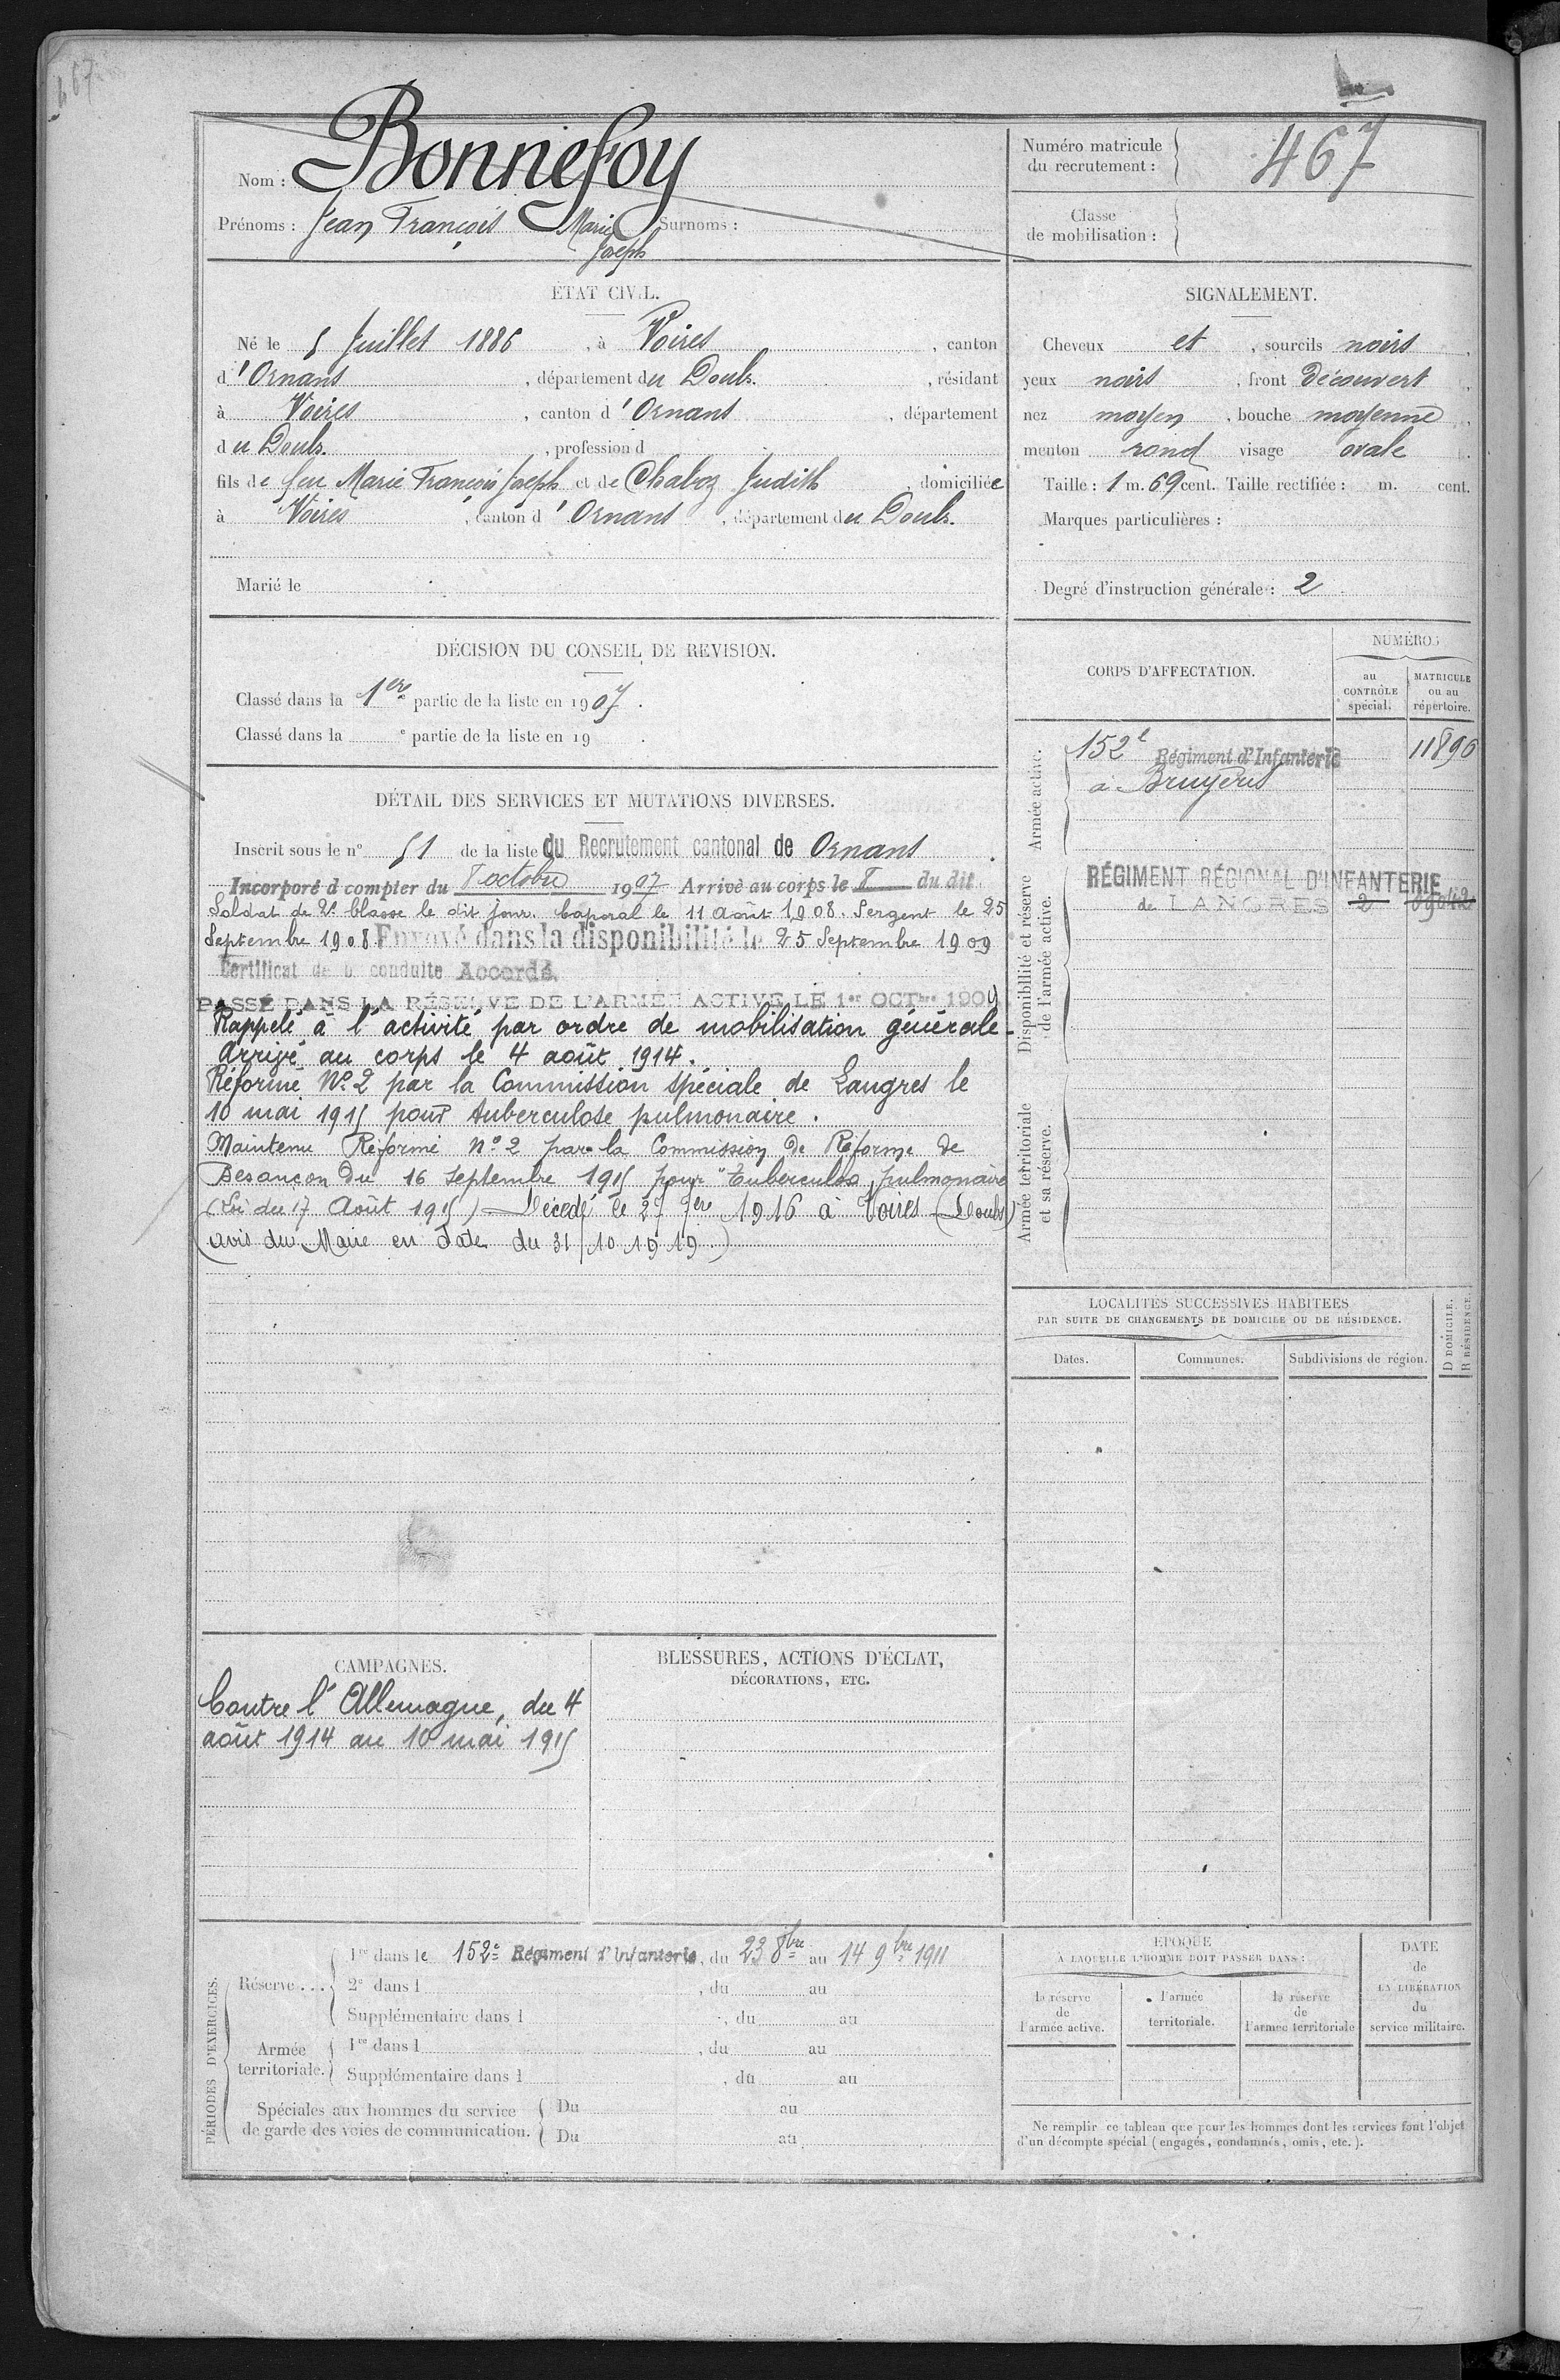 467
Bonnefoy
Nom :
Prénoms : Jean François Marie Surnoms :
Joseph
Numéro matricule
du recrutement : 467
Classe
de mobilisation :
ÉTAT CIVIL.
Né le 5 Juillet 1886, à Voires, canton
d'Ornans, département du Doubs, résidant
à Voires, canton d'Ornans, département
du Doubs, profession d
fils de feu Marie François Joseph et de Chaboz Judith, domiciliée
à Voires, canton d'Ornans, département du Doubs.
Marié le
SIGNALEMENT.
Cheveux et, sourcils noirs,
yeux noirs, front découvert,
nez moyen, bouche moyenne,
menton rond visage ovale.
Taille : 1 m. 69 cent. Taille rectifiée : m. cent.
Marques particulières :
Degré d'instruction générale : 2
DÉCISION DU CONSEIL DE REVISION.
Classé dans la 1ere partie de la liste en 1907.
Classé dans la e partie de la liste en 19 .
DÉTAIL DES SERVICES ET MUTATIONS DIVERSES.
Inscrit sous le n° 51 de la liste du Recrutement cantonal de Ornans.
Incorporé à compter du 8 octobre 1907 Arrivé au corps le 8 du dit.
Soldat de 2e Classe le dit jour. Caporal le 11 Août 1908. Sergent le 25
Septembre 1908. Envoyé dans la disponibilité le 25 Septembre 1909
Certificat de b conduite Accordé.
PASSÉ DANS LA RÉSERVE DE L'ARMÉE ACTIVE LE 1er OCTbre 1909
Rappelé à l'activité par ordre de mobilisation générale.
Arrivé au corps le 4 août 1914.
Réformé No 2 par la Commission spéciale de Langres le
10 mai 1915 pour tuberculose pulmonaire.
Maintenu Réformé No 2 par la Commission de Réforme de
Besançon du 16 Septembre 1915 pour "tuberculose pulmonaire
(Loi du 17 Août 1915) Décédé le 27 7bre 1916 à Voires (Doubs)
(avis du Maire en date du 31/10 1919)
CORPS D'AFFECTATION.
NUMÉROS
au
CONTRÔLE
spécial.
MATRICULE
ou au
répertoire.
Armée active.
152e Régiment d'Infanterie 11890
à Bruyères
Disponibilité et réserve
de l'armée active.
RÉGIMENT RÉGIONAL D'INFANTERIE
de LANGRES 2
Armée territoriale
et sa réserve.
LOCALITÉS SUCCESSIVES HABITÉES
PAR SUITE DE CHANGEMENTS DE DOMICILE OU DE RÉSIDENCE.
Dates. Communes. Subdivisions de région.
D DOMICILE.
R RÉSIDENCE.
CAMPAGNES.
Contre l'Allemagne, du 4
août 1914 au 10 mai 1915
BLESSURES, ACTIONS D'ÉCLAT,
DÉCORATIONS, ETC.
PÉRIODES D'EXERCICES.
Réserve ...
1re dans le 152e Régiment d'Infanterie, du 23 8bre au 14 9bre 1911
2e dans l , du au
Supplémentaire dans l , du au
Armée
territoriale.
1re dans l , du au
Supplémentaire dans l , du au
Spéciales aux hommes du service
de garde des voies de communication.
Du au
Du au
ÉPOQUE
À LAQUELLE L'HOMME DOIT PASSER DANS :
la réserve
de
l'armée active.
l'armée
territoriale.
la réserve
de
l'armée territoriale
DATE
de
LA LIBÉRATION
du
service militaire.
Ne remplir ce tableau que pour les hommes dont les services font l'objet
d'un décompte spécial (engagés, condamnés, omis, etc.).